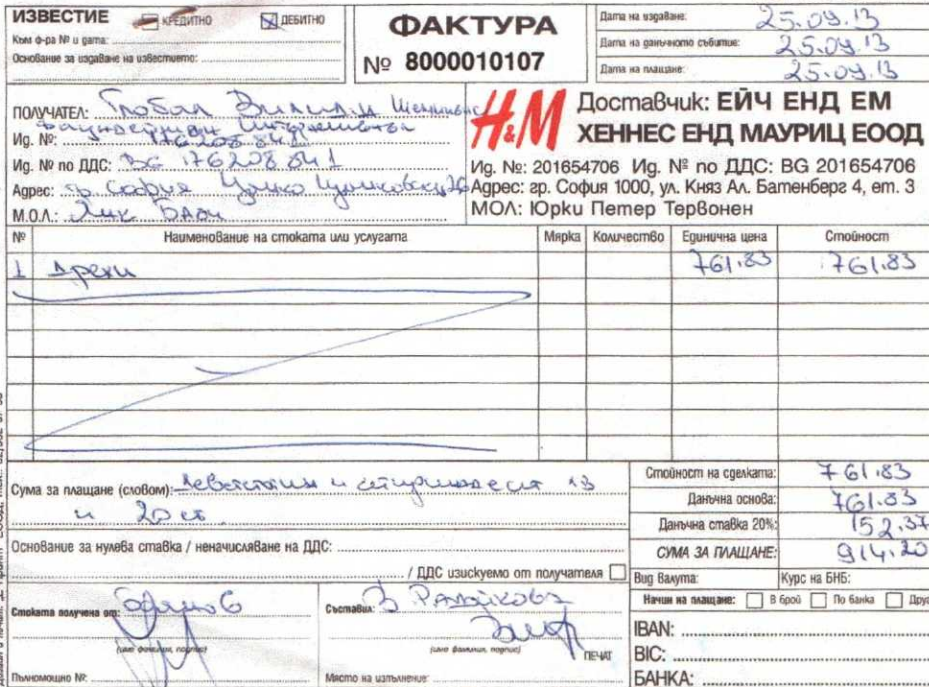 ИЗВЕСТИЕ КРЕДИТНО ДЕБИТНО
Към ф-ра № и дата:
Основание за издаване на известието:
ФАКТУРА
№ 8000010107
Дата на издаване: 25.09.13
Дата на данъчното събитие: 25.09.13
Дата на плащане: 25.09.13
ПОЛУЧАТЕЛ: Глобал
Ид. №: 176208841
Ид. № по ДДС: BG 176208841
Адрес: гр. София Цанко Церковски
М.О.Л.:
H&M
Доставчик: ЕЙЧ ЕНД ЕМ
ХЕННЕС ЕНД МАУРИЦ ЕООД
Ид. №: 201654706 Ид. № по ДДС: BG 201654706
Адрес: гр. София 1000, ул. Княз Ал. Батенберг 4, ет. 3
МОЛ: Юрки Петер Тервонен
№ Наименование на стоката или услугата Мярка Количество Единична цена Стойност
1 Дрехи 761.83 761.83
Сума за плащане (словом): Деветстотин и четиринадесет лв
и 20 ст.
Основание за нулева ставка / неначисляване на ДДС:
/ ДДС изискуемо от получателя
Стойност на сделката: 761.83
Данъчна основа: 761.83
Данъчна ставка 20%: 152.37
СУМА ЗА ПЛАЩАНЕ: 914.20
Вид валута: Курс на БНБ:
Начин на плащане: В брой По банка
IBAN:
BIC:
БАНКА:
Стоката получена от:
(име фамилия, подпис)
Пълномощно №:
Съставил:
(име фамилия, подпис)
ПЕЧАТ
Място на изпълнение: